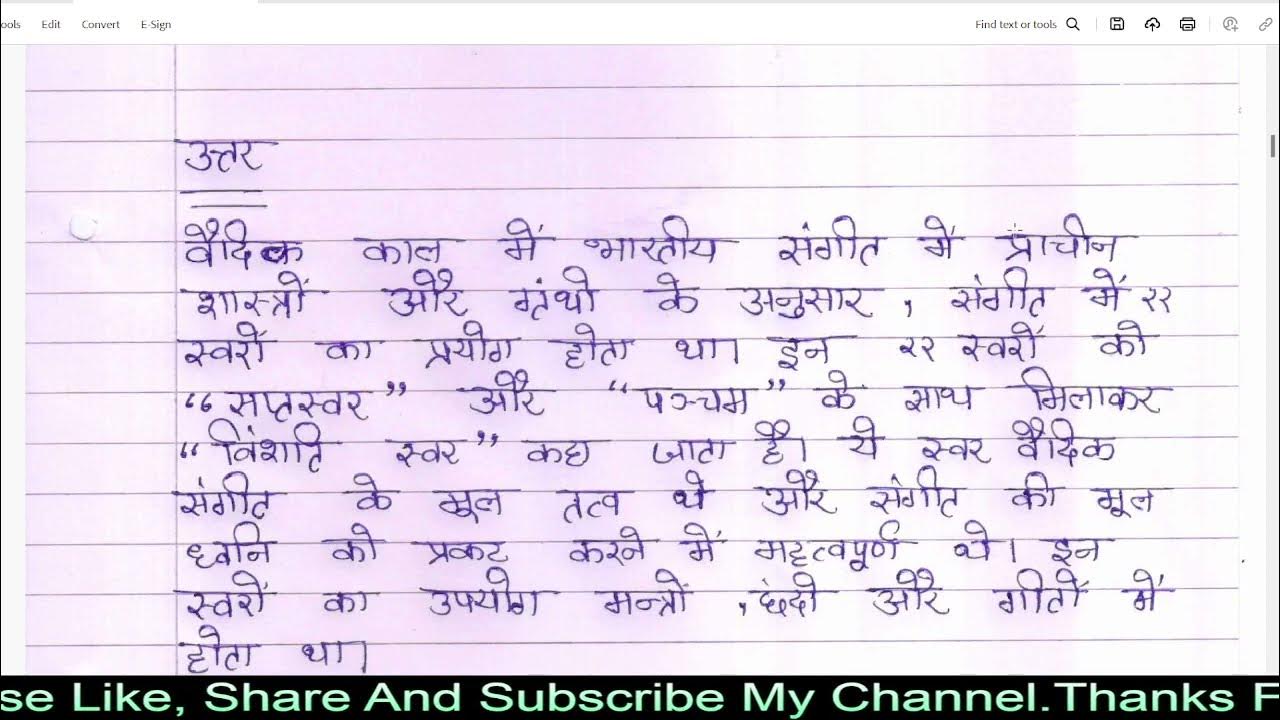 ools Edit Convert E-Sign Find text or tools
उत्तर
वैदिक काल में भारतीय संगीत में प्राचीन
शास्त्रों और ग्रंथो के अनुसार , संगीत में २२
स्वरों का प्रयोग होता था। इन २२ स्वरों को
“सप्तस्वर” और “पञ्चम” के साथ मिलाकर
“विंशति स्वर” कहा जाता है। ये स्वर वैदिक
संगीत के मूल तत्व थे और संगीत की मूल
ध्वनि को प्रकट करने में महत्वपूर्ण थे। इन
स्वरों का उपयोग मन्त्रों , छंदो और गीतों में
होता था।
se Like, Share And Subscribe My Channel.Thanks F